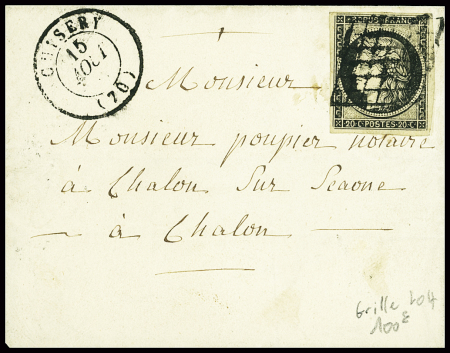 CUISERY
15
AOUT
(70)
REPUB. FRANC.
20.C POSTES 20.C
Monsieur
Monsieur poupier notaire
à Chalon Sur Seaone
- à Chalon -
Grille 204
100€